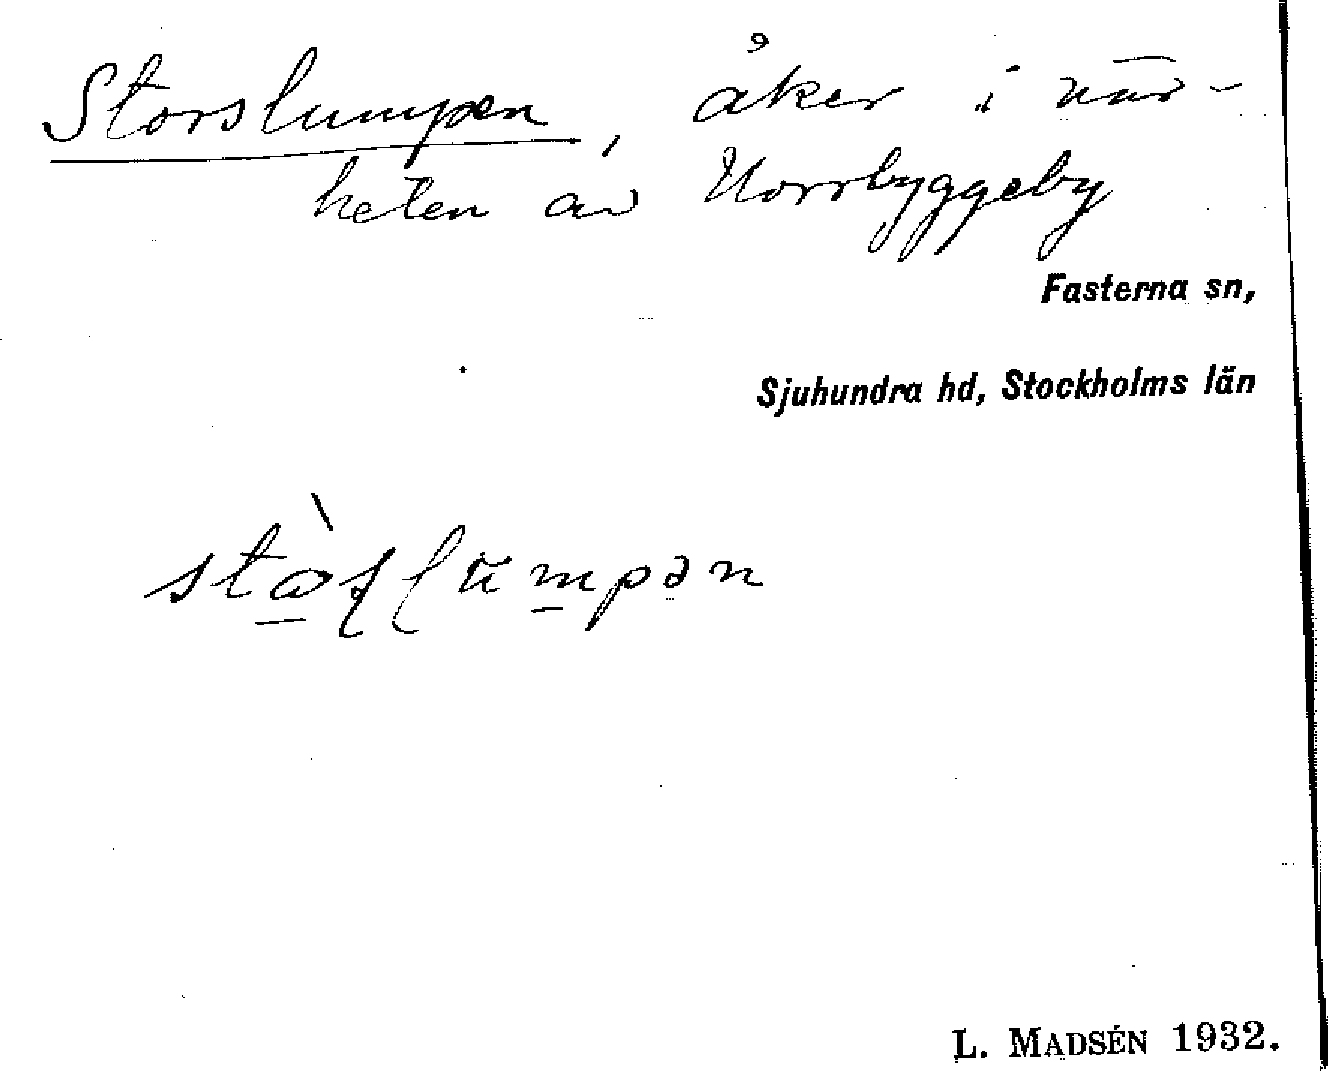 Storslumpen, åker i när-
heten av Norrbyggeby
Fasterna sn,
Sjuhundra hd, Stockholms län
L. MADSÉN 1932.